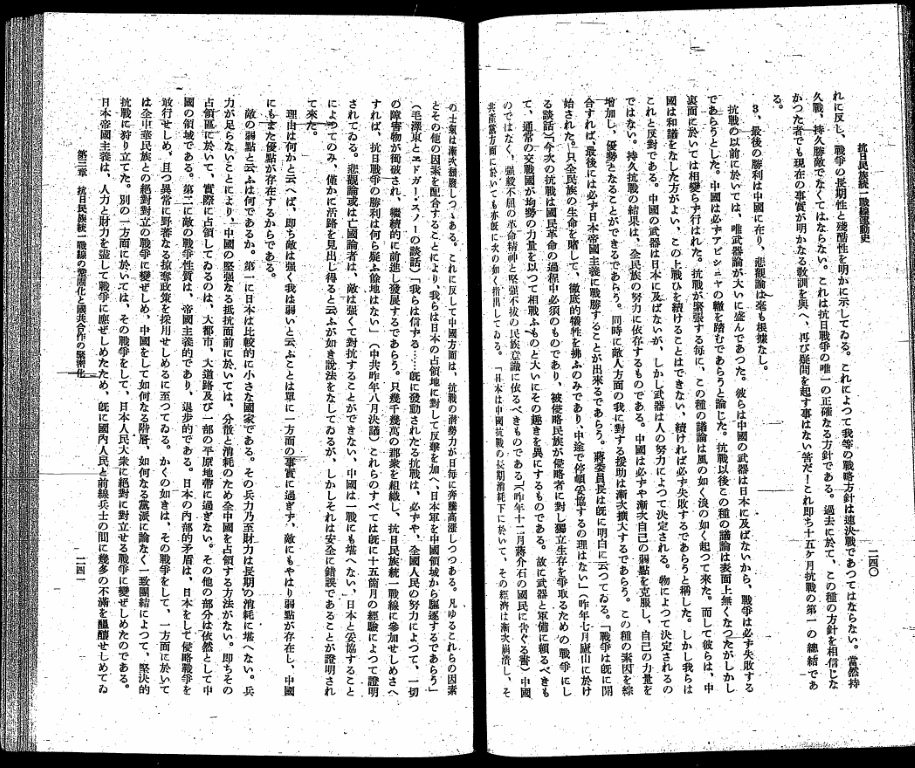 抗日民族統一戰線運動史
一四〇
れに反し、戰爭の長期性と殘酷性を明かに示してゐる。これによつて我等の戰略方針は速決戰であつてはならない。當然持
久戰、持久勝敵でなくてはならない。これは抗日戰爭の唯一の正確なる方針である。過去に於て、この種の方針を相信じな
かつた者でも現在の事實が明かなる教訓を與へ、再び疑問を起す事はない筈だ！これ即ち十五ケ月抗戰の第一の總結であ
る。
3、最後の勝利は中國に在り、悲觀論は毫も根據なし。
抗戰の以前に於いては、唯武器論が大いに盛んであつた。彼らは中國の武器は日本に及ばないから、戰爭は必ず失敗する
であらうとした。中國は必ずアビシニヤの轍を踏むであらうと論じた。抗戰以後この種の議論は表面上無くなつたがしかし
裏面に於いては相變らず行はれた。抗戰が緊張する每に、この種の議論は風の如く浪の如く起つて來た。而して彼らは、中
國は和議をなした方がよい、この上戰ひを續けることはできない、續ければ必ず失敗するであらうと稱した。しかし我らは
これと反對である。中國の武器は日本に及ばないが、しかし武器は人の努力によつて決定される。物によつて決定されるの
ではない。持久抗戰の結果は、全民族の努力に依存するものである。中國は必ずや漸次自己の弱點を克服し、自己の力量を
增加し、優勢となることができるであらう。同時に敵人方面の我に對する援助は漸次擴大するであらう。この種の素因を綜
合すれば、最後には必ず日本帝國主義に戰勝することが出來るであらう。蔣委員長は旣に明白に云つてゐる。「戰爭は旣に開
始された。只全民族の生命を賭して、徹底的犧牲を拂ふのみであり、中途で停頓妥協するの理はない」（昨年七月廬山に於け
る談話）今次の抗戰は國民革命の過程中必須のものであり、被侵略民族が侵略者に對し獨立生存を爭取るための戰爭にし
て、通常の交戰國が均勢の力量を以つて相戰ふものと大いにその趣きを異にするものである。故に武器と軍備に賴るべきも
のではなく、强毅不屈の革命精神と堅强不拔の民族意識に依るべきものである（昨年十一月蔣介石の國民に告ぐる書）中國
共產黨方面に於いても亦旣に次の如く指出してゐる。「日本は中國抗戰の長期消耗下に於いて、その經濟は漸次崩潰し、そ
の士氣は漸次頽廢しつゝある。これに反して中國方面は、抗戰の潛勢力が日每に奔騰高漲しつつある。凡ゆるこれらの因素
とその他の因素を配合することにより、我らは日本の占領地に對して反攻を加へ、日本軍を中國領域から驅逐するであらう」
（毛澤東とエドガー・スノーの談話）「我らは信ずる……旣に發動された抗戰は、必ずや、全國人民の努力によつて、一切
の障害物が衝破され、繼續的に前進し發展するであらう。只幾千幾萬の群衆を組織し、抗日民族統一戰線に參加せしめさへ
すれば、抗日戰爭の勝利は何ら疑ふ餘地はない」（中共昨年八月決議）これらのすべては旣に十五箇月の經驗によつて證明
されてゐる。悲觀論或は亡國論者は、敵は强くて對抗することができない、中國は一戰にも堪へない、日本と妥協すること
によつてのみ、僅かに活路を見出し得ると云ふが如き說法をなしてゐるが、しかしそれは安全に錯誤であることが證明され
て來た。
理由は何かと云へば、即ち敵は强く我は弱いと云ふことは單に一方面の事實に過ぎず、敵にもやはり弱點が存在し、中國
にもまた優點が存在するからである。
敵の弱點と云ふは何であるか。第一に日本は比較的に小さな國家である。その兵力乃至財力は長期の消耗に堪へない。兵
力が足らないことにより、中國の堅强なる抵抗面前に於いては、分散と消耗のため全中國を占領する方法がない。即ちその
占領區に於いて、實際に占領してゐるのは、大都市、大道路及び一部の平原地帶に過ぎない。その他の部分は依然として中
國の領域である。第二に敵の戰爭性質は、帝國主義的であり、退步的である。日本の內部的矛盾は、日本をして侵略戰爭を
敢行せしめ、且つ異常に野蠻なる掠奪政策を採用せしめるに至つてゐる。かくの如きは、その戰爭をして、一方面に於いて
は全中華民族との絕對對立の戰爭に變ぜしめ、中國をして如何なる階層、如何なる黨派に論なく一致團結によつて、堅決的
抗戰に狩り立てた。別の一方面に於いては、その戰爭をして、日本人民大衆に絕對に對立せる戰爭に變ぜしめたのである。
日本帝國主義は、人力と財力を盡して戰爭に應ぜしめたため、旣に國內人民と前線兵士の間に幾多の不滿を醞釀せしめてゐ
第三章　抗日民族統一戰線の鞏固化と國共合作の緊密化
一四一